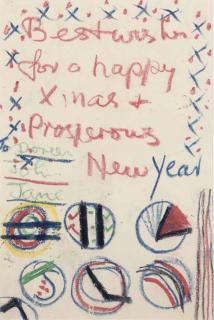 Best wishes
for a happy
Xmas +
Prosperous
New Year
To Doreen
John
Jane